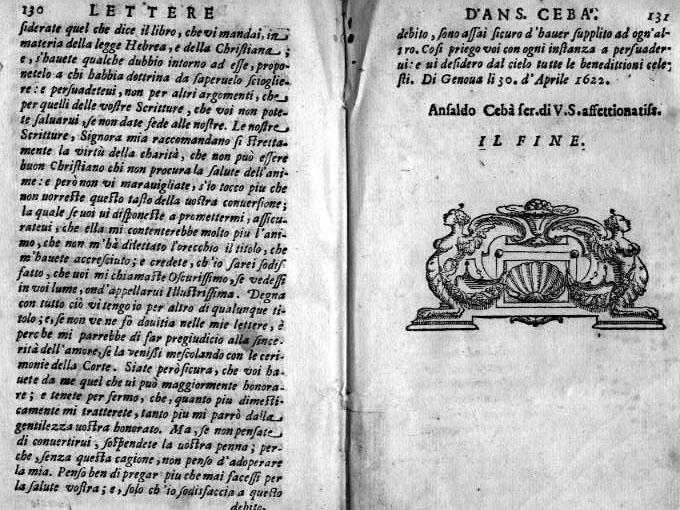 130 LETTERE
siderate quel che dice il libro, che vi mandai, in
materia della legge Hebrea, e della Christiana;
e, s'hauete qualche dubbio intorno ad esse, propo-
netelo a chi habbia dottrina da saperuelo scioglie-
re: e persuadeteui, non per altri argomenti, che
per quelli delle vostre Scritture, che voi non pote-
te saluarui, se non date fede alle nostre. Le nostre
Scritture, Signora mia raccomandano sì stretta-
mente la virtù della charità, che non può essere
buon Christiano chi non procura la salute dell'ani-
me: e però non vi marauigliate, s'io tocco piu che
non uorreste questo tasto della uostra conuersione;
la quale se uoi ui disponeste a promettermi, assicu-
rateui, che ella mi contenterebbe molto piu l'ani-
mo, che non m'hà dilettato l'orecchio il titolo, che
m'hauete accresciuto; e credete, ch'io sarei sodis-
fatto, che uoi mi chiamaste Oscurissimo, se vedessi
in voi lume, ond'appellarui Illustrissima. Degna
con tutto ciò vi tengo io per altro di qualunque ti-
tolo; e, se non ve ne fò douitia nelle mie lettere, è
perche mi parrebbe di far pregiudicio alla since-
rità dell'amore, se la venissi mescolando con le ceri-
monie della Corte. Siate però sicura, che voi ha-
uete da me quel che ui può maggiormente honora-
re; e tenete per fermo, che, quanto piu dimesti-
camente mi tratterete, tanto piu mi parrò dalla
gentilezza uostra honorato. Ma, se non pensate
di conuertirui, sospendete la uostra penna; per-
che, senza questa cagione, non penso d'adoperare
la mia. Penso ben di pregar piu che mai facessi per
la salute vostra; e, solo ch'io sodisfaccia a questo
debito,
D'ANS. CEBÀ. 131
debito, sono assai sicuro d'hauer supplito ad ogn'al-
tro. Così priego voi con ogni instanza a persuader-
ui: e ui desidero dal cielo tutte le benedittioni cele-
sti. Di Genoua li 30. d'Aprile 1622.
Ansaldo Cebà ser. di V. S. affettionatiss.
IL FINE.